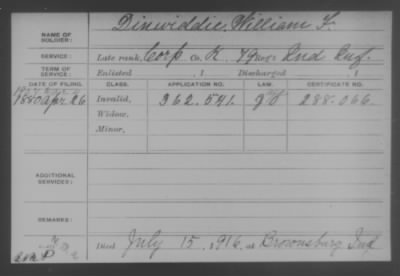 NAME OF SOLDIER: Dinwiddie, William F.
SERVICE: Late rank, Corp. Co. K. 79 Reg't Ind Inf.
TERM OF SERVICE: Enlisted , 1 Discharged , 1
DATE OF FILING. CLASS. APPLICATION NO. LAW. CERTIFICATE NO.
1880 Apr 26 Invalid, 362.541. 288.066
Widow,
Minor,
ADDITIONAL SERVICES:
REMARKS:
Died July 15, 1916, at Brownsburg Ind